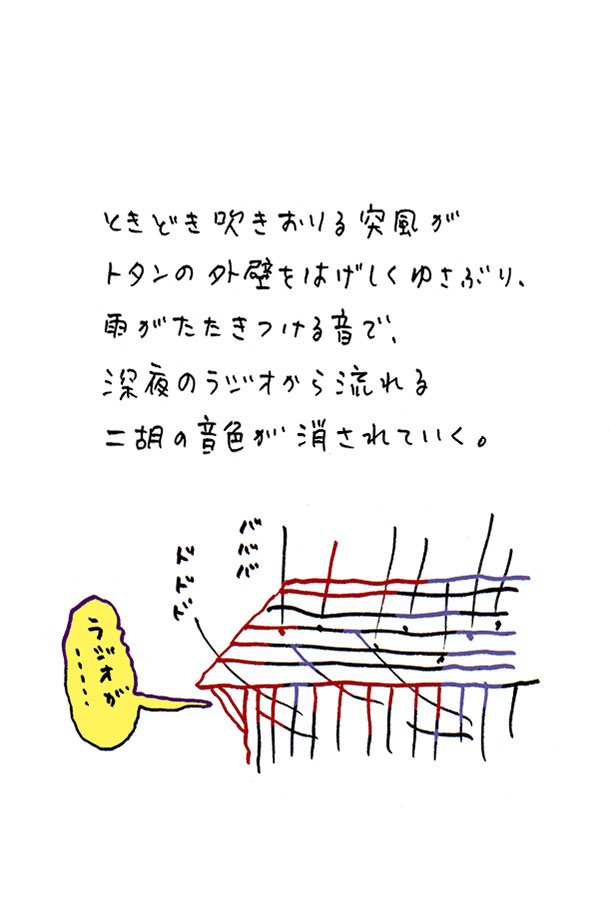 ときどき吹きおりる突風が
トタンの外壁をはげしくゆさぶり、
雨がたたきつける音で、
深夜のラジオから流れる
二胡の音色が消されていく。
バババ
ドドド
ラジオが……